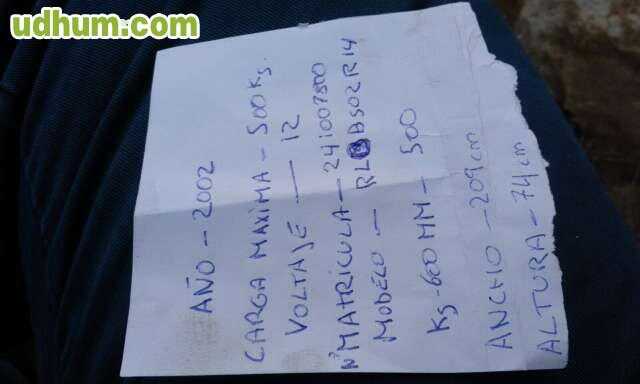 udhum.com
AÑO - 2002
CARGA MAXIMA - 500 Kg.
VOLTAJE — 12
Nº MATRICULA - 241007500
MODELO - RL B502R14
Kg - 600 MM - 500
ANCHO - 209 cm
ALTURA - 74 cm